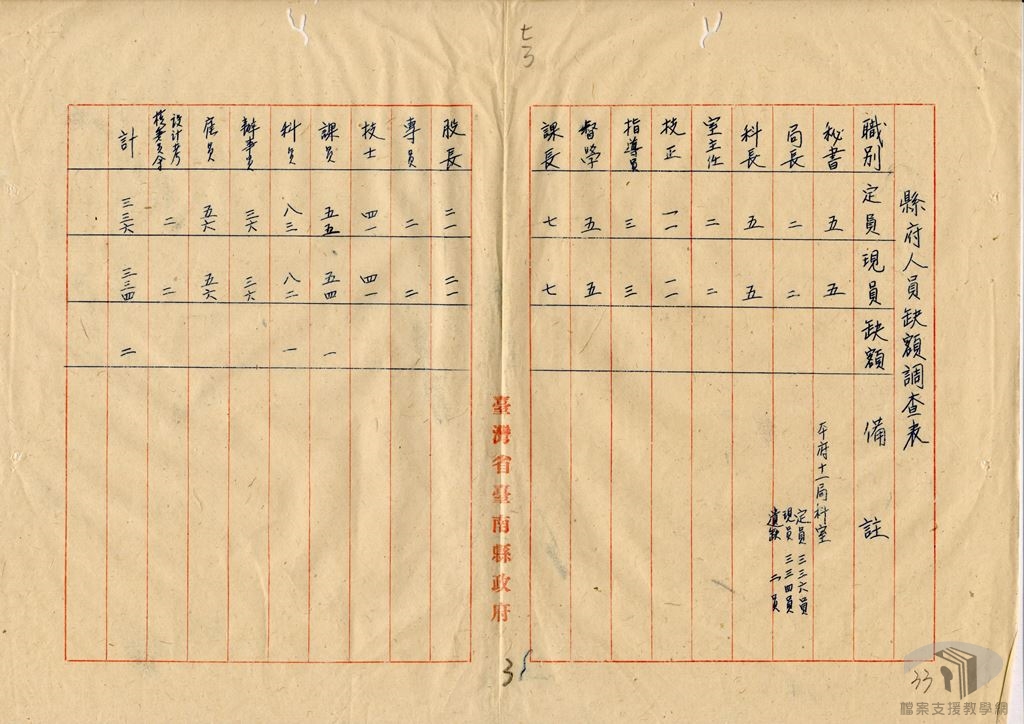 七了
縣府人員缺額調查表
職別 定員 現員 缺額 備註
秘書 五 五 本府十一局科室
定員 三三六員
現員 三三四員
遺缺 二員
局長 二 二
科長 五 五
室主任 二 二
技正 一一 一一
指導員 三 三
督學 五 五
課長 七 七
臺灣省臺南縣政府
股長 二一 二一
專員 二 二
技士 四一 四一
課員 五五 五四 一
科員 八三 八二 一
辦事員 三六 三六
雇員 五六 五六
設計考核委員會 二 二
計 三三六 三三四 二
33
檔案支援教學網